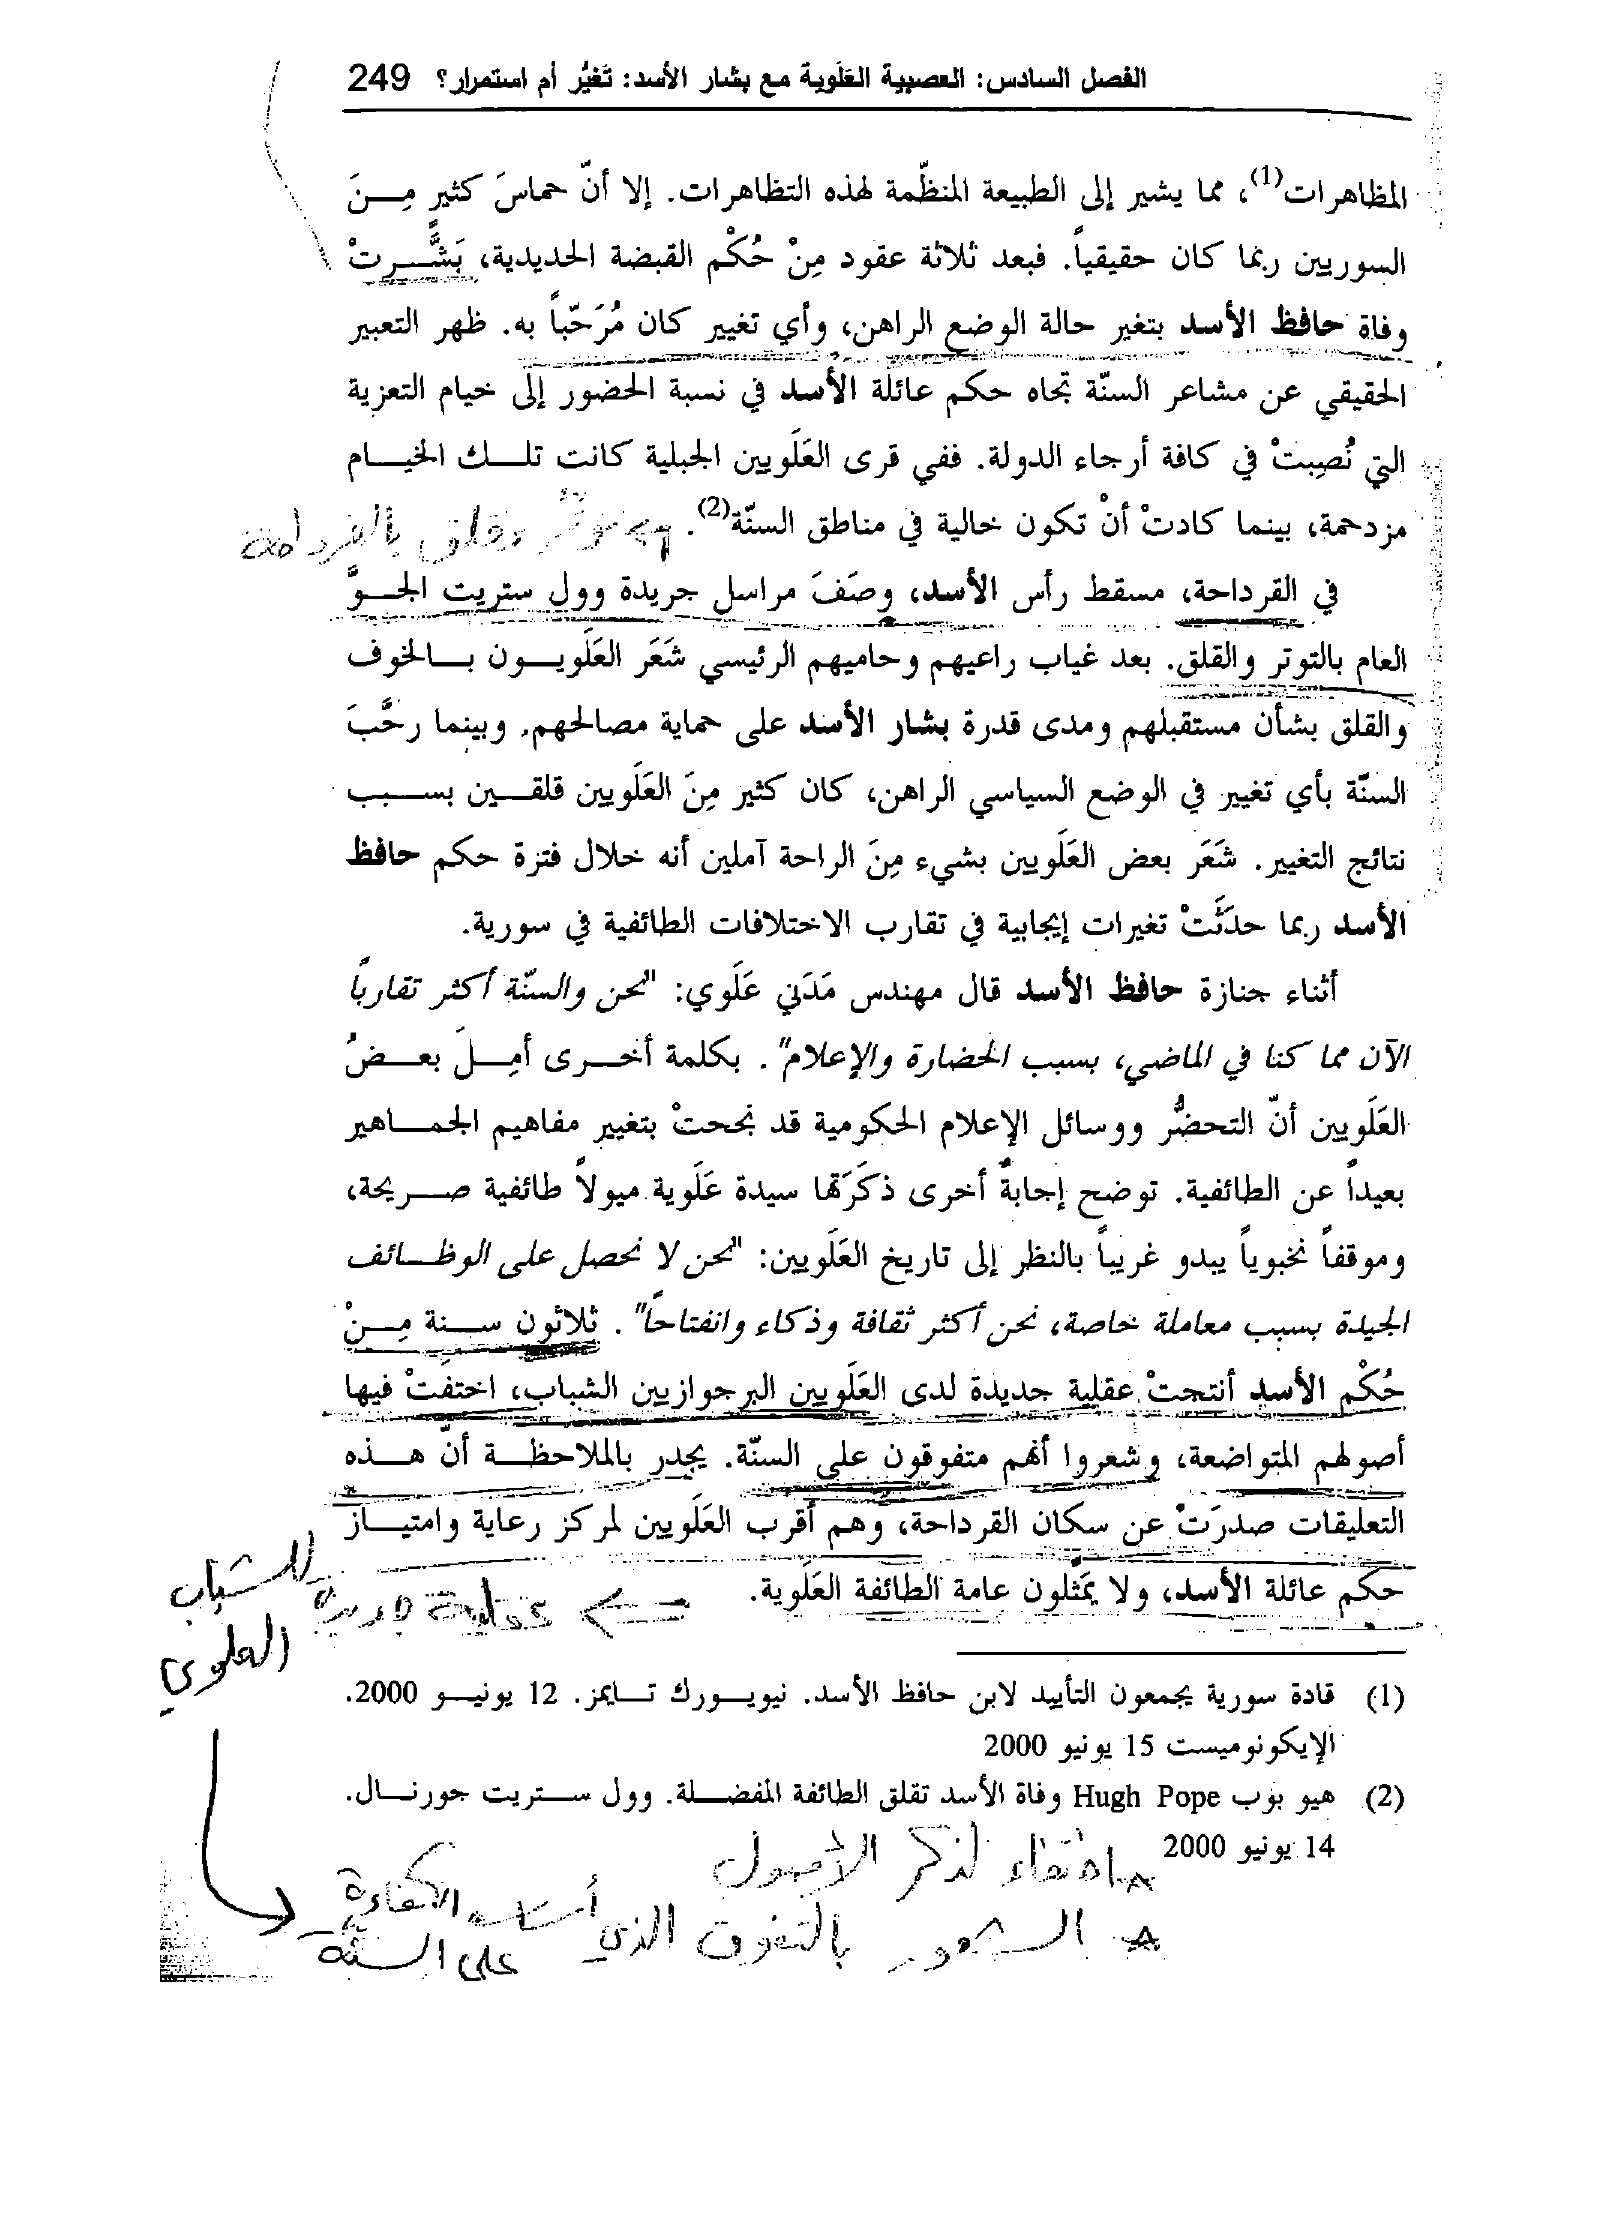 الفصل السادس: العصبية العَلَوية مع بشار الأسد: تَغيُّر أم استمرار؟ 249
المظاهرات(1)، مما يشير إلى الطبيعة المنظّمة لهذه التظاهرات. إلا أنّ حماسَ كثيرٍ مِـنَ
السوريين ربما كان حقيقياً. فبعد ثلاثة عقود مِنْ حُكْم القبضة الحديدية، بَشَّـــرتْ
وفاة حافظ الأسد بتغير حالة الوضع الراهن، وأي تغيير كان مُرَحّباً به. ظهر التعبير
الحقيقي عن مشاعر السنّة تجاه حكم عائلة الأسد في نسبة الحضور إلى خيام التعزية
التي نُصِبتْ في كافة أرجاء الدولة. ففي قرى العَلَويين الجبلية كانت تلــك الخيــام
مزدحمة، بينما كادتْ أنْ تكون خالية في مناطق السنّة(2). توتر وقلق بالقرداحة
في القرداحة، مسقط رأس الأسد، وصَفَ مراسل جريدة وول ستريت الجــوَّ
العام بالتوتر والقلق. بعد غياب راعيهم وحاميهم الرئيسي شَعَر العَلَويــون بــالخوف
والقلق بشأن مستقبلهم ومدى قدرة بشار الأسد على حماية مصالحهم. وبينما رحَّبَ
السنّة بأي تغيير في الوضع السياسي الراهن، كان كثير مِنَ العَلَويين قلقــين بســبب
نتائج التغيير. شَعَر بعض العَلَويين بشيء مِنَ الراحة آملين أنه خلال فترة حكم حافظ
الأسد ربما حدَثَتْ تغيرات إيجابية في تقارب الاختلافات الطائفية في سورية.
أثناء جنازة حافظ الأسد قال مهندس مَدَني عَلَوي: "نحن والسنّة أكثر تقارباً
الآن مما كنا في الماضي، بسبب الحضارة والإعلام". بكلمة أخــرى أمِــلَ بعــضُ
العَلَويين أنّ التحضُّر ووسائل الإعلام الحكومية قد نجحتْ بتغيير مفاهيم الجمــاهير
بعيداً عن الطائفية. توضح إجابةٌ أخرى ذكَرَتْها سيدة عَلَوية ميولاً طائفية صــريحة،
وموقفاً نخبوياً يبدو غريباً بالنظر إلى تاريخ العَلَويين: "نحن لا نحصل على الوظــائف
الجيدة بسبب معاملة خاصة، نحن أكثر ثقافة وذكاء وانفتاحاً". ثلاثون ســنة مِــنْ
حُكْم الأسد أنتجتْ عقلية جديدة لدى العَلَويين البرجوازيين الشباب، اختفتْ فيها
أصولهم المتواضعة، وشعروا أنهم متفوقون على السنّة. يجدر بالملاحظــة أنّ هــذه
التعليقات صدرَتْ عن سكان القرداحة، وهم أقرب العَلَويين لمركز رعاية وامتيــاز
حكم عائلة الأسد، ولا يمَثّلون عامة الطائفة العَلَوية.
<= عقلية جديدة للشباب
العلوي
(1) قادة سورية يجمعون التأييد لابن حافظ الأسد. نيويــورك تــايمز. 12 يونيــو 2000.
الإيكونوميست 15 يونيو 2000
(2) هيو بوب Hugh Pope وفاة الأسد تقلق الطائفة المفضــلة. وول ســتريت جورنــال.
14 يونيو 2000
اختفاء لذكر الأصول
الشعور بالتفوق الذي أساسه الكفاءة
على السنة